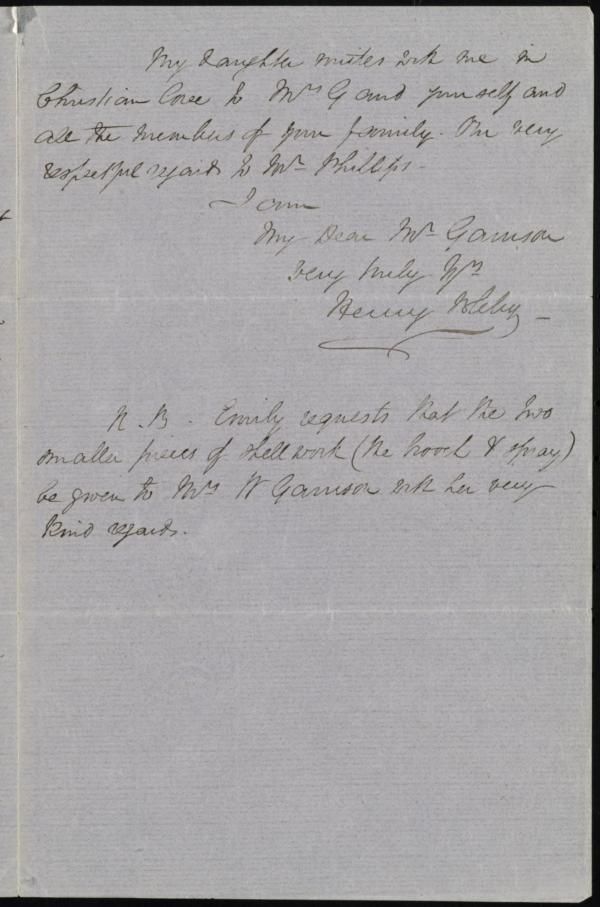 My daughter unites with me in
Christian love to Mrs G and yourself and
all the members of your family. Our very
respectful regards to Mr Phillips -
I am
My Dear Mr Garrison
very truly Yrs
Henry
N. B. Emily requests that the two
smaller pieces of shell work (the brooch & spray)
be given to Mrs W Garrison with her very
kind regards.